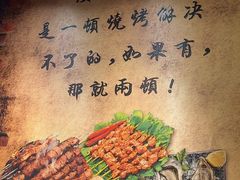 是一顿燒烤解决
不了的，如果有，
那就兩頓！